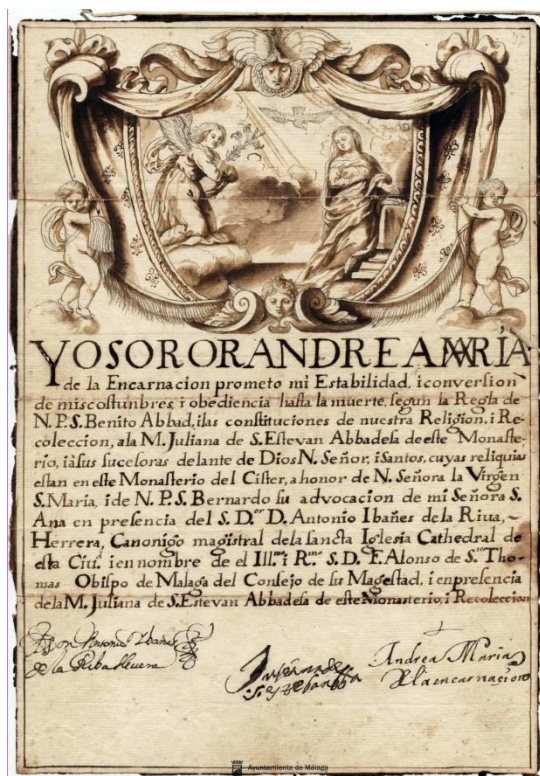 YO SOROR ANDREA MARÍA
de la Encarnacion prometo mi Estabilidad, i conversion
de mis costunbres, i obediencia hasta la muerte, segun la Regla de
N. P. S. Benito Abbad, i las constituciones de nuestra Religion, i Re-
coleccion, a la M. Juliana de S. Estevan Abbadesa de este Monaste-
rio, i à sus sucesoras delante de Dios N. Señor, i Santos, cuyas reliquias
estan en este Monasterio del Cister, a honor de N. Señora la Virgen
S. Maria, i de N. P. S. Bernardo su advocacion de mi Señora S.
Ana en presencia del S. D.or D. Antonio Ibañes de la Riua,
Herrera, Canonigo magistral de la sancta Iglesia Cathedral de
esta Ciu.d i en nombre de el Ill.mo i R.mo S. D. F. Alonso de S.to Tho-
mas Obispo de Malaga del Consejo de su Magestad, i en presencia
de la M. Juliana de S. Estevan Abbadesa de este Monasterio, i Recoleccion
Don Antonio Ibañes
de la Riba Herrera
Juliana de
S. Esteban
Andrea Maria
de la encarnacion
Ayuntamiento de Málaga